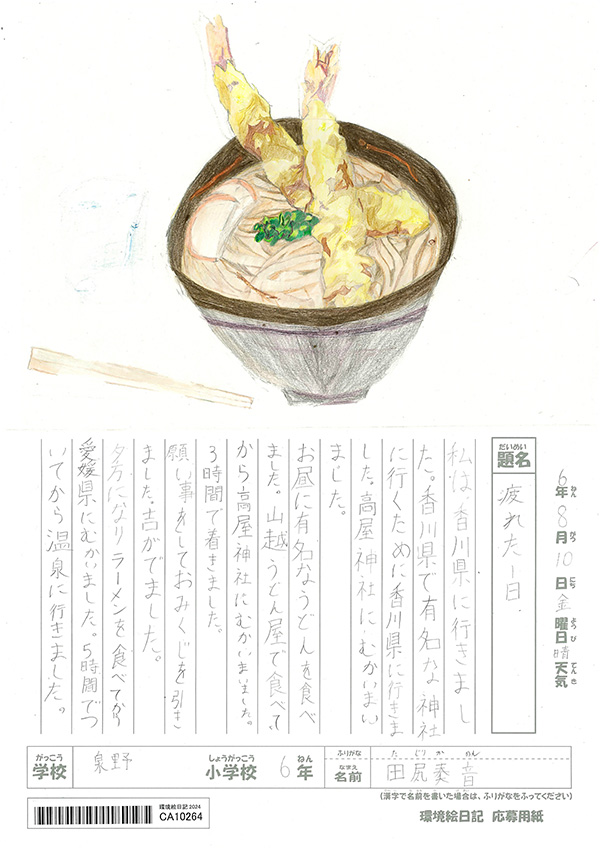 6年8月10日金曜日晴天気
ねん がつ にち ようび てんき
だいめい
題名
疲れた一日.
私は香川県に行きまし
た。香川県で有名な神社
に行くために香川県に行きま
した。高屋神社にむかいまい
ました。
お昼に有名なうどんを食べ
ました。山越うどん屋で食べて、
から高屋神社にむかいまいました。
3時間で着きました。
願い事をしておみくじを引き
ました。吉がでました。
夕方になりラーメンを食べてから
愛媛県にむかいました。5時間でつ
いてから温泉に行きました。
がっこう しょうがっこう ねん
学校 泉野 小学校 6年
ふりがな たじり かのん
なまえ
名前 田尻奏音
(漢字で名前を書いた場合は、ふりがなをふってください)
環境絵日記2024
CA10264
環境絵日記 応募用紙